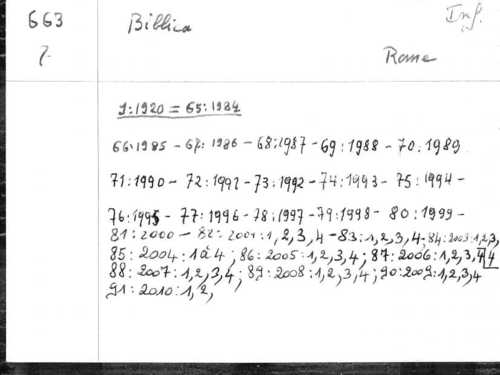 663 Biblica Inf.
7. Rome
1:1920 = 65:1984
66:1985 - 67:1986 - 68:1987 - 69:1988 - 70:1989
71:1990 - 72:1991 - 73:1992 - 74:1993 - 75:1994 -
76:1995 - 77:1996 - 78:1997 - 79:1998 - 80:1999 -
81:2000 - 82:2001:1,2,3,4 - 83:1,2,3,4; 84:2003:1,2,3,
85:2004:1à4; 86:2005:1,2,3,4; 87:2006:1,2,3,4 4
88:2007:1,2,3,4; 89:2008:1,2,3,4; 90:2009:1,2,3,4
91:2010:1,2,